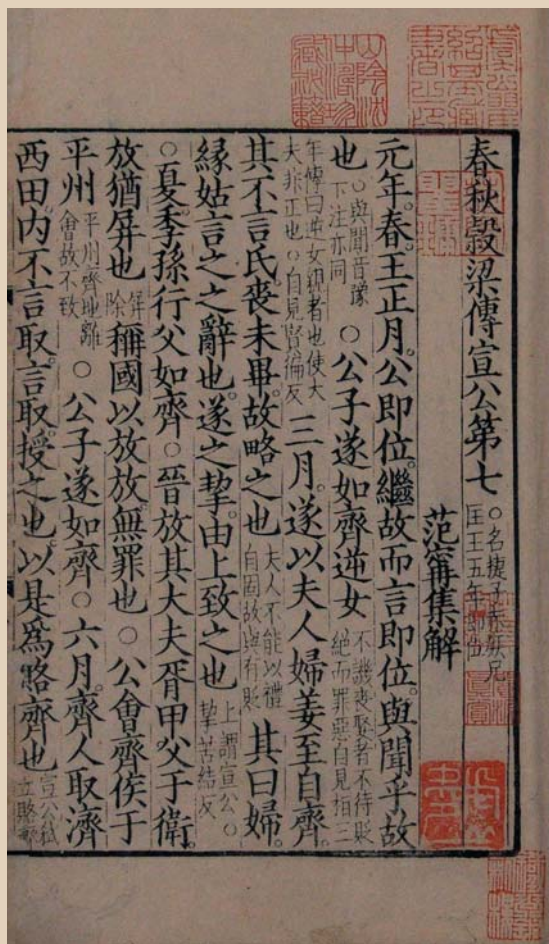 春秋穀梁傳宣公第七 ○名捷子赤庶兄 匡王五年即位
范甯集解
元年。春。王正月。公即位。繼故而言即位。與聞乎故
也 ○與聞音豫 下注亦同 ○公子遂如齊逆女 不譏喪娶者不待貶 絕而罪惡自見桓三
年傳曰逆女親者也使大 夫非正也○自見賢徧反 三月。遂以夫人婦姜至自齊。
其不言氏。喪未畢。故略之也 夫人不能以禮 自固故與有貶 其曰婦。
緣姑言之之辭也。遂之挈。由上致之也 上謂宣公○ 挈苦結反
○夏。季孫行父如齊。○晉放其大夫胥甲父于衛。
放猶屏也 屏 除 稱國以放。放無罪也。○公會齊侯于
平州 平州齊地離 會故不致 ○公子遂如齊。○六月。齊人取濟
西田。内不言取。言取。授之也。以是爲賂齊也 宣公弑 立賂齊